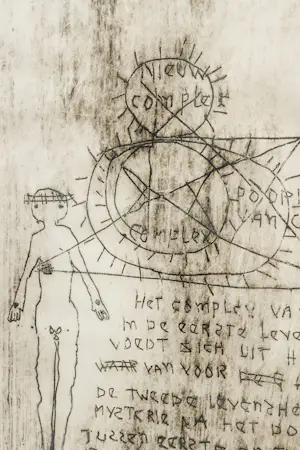 NIEUW
COMPLEX
VAN
COMPLEX
HET COMPLEX VA
IN DE EERSTE LEVE
VOEDT ZICH UIT H
WAAR VAN VOOR
DE TWEEDE LEVENSHE
MYSTERIE NA HET DO
TUSSEN EERSTE